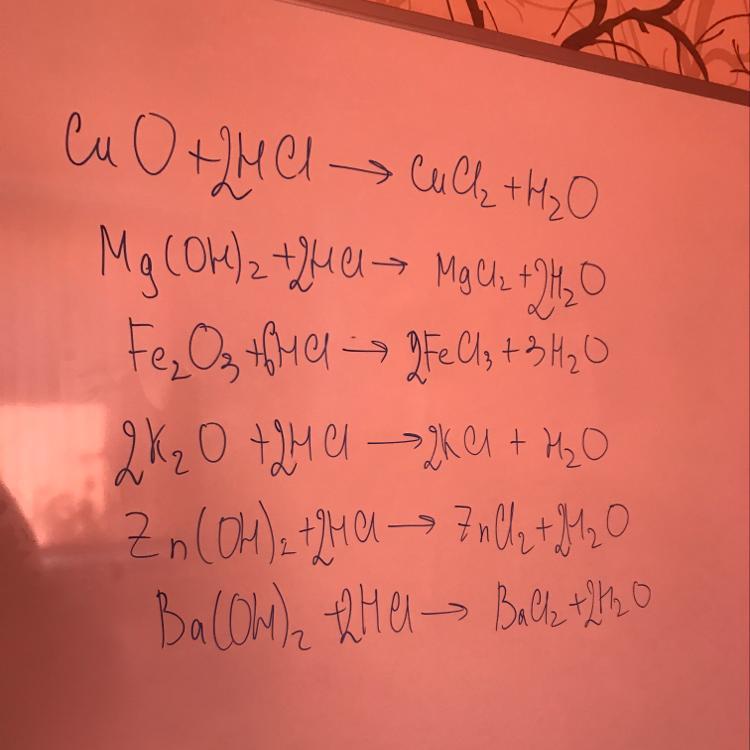 CuO + 2HCl → CuCl₂ + H₂O
Mg(OH)₂ + 2HCl → MgCl₂ + 2H₂O
Fe₂O₃ + 6HCl → 2FeCl₃ + 3H₂O
2K₂O + 2HCl → 2KCl + H₂O
Zn(OH)₂ + 2HCl → ZnCl₂ + 2H₂O
Ba(OH)₂ + 2HCl → BaCl₂ + 2H₂O